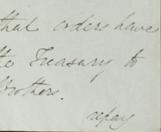 that orders have
the Treasury to
Brothers.
repay